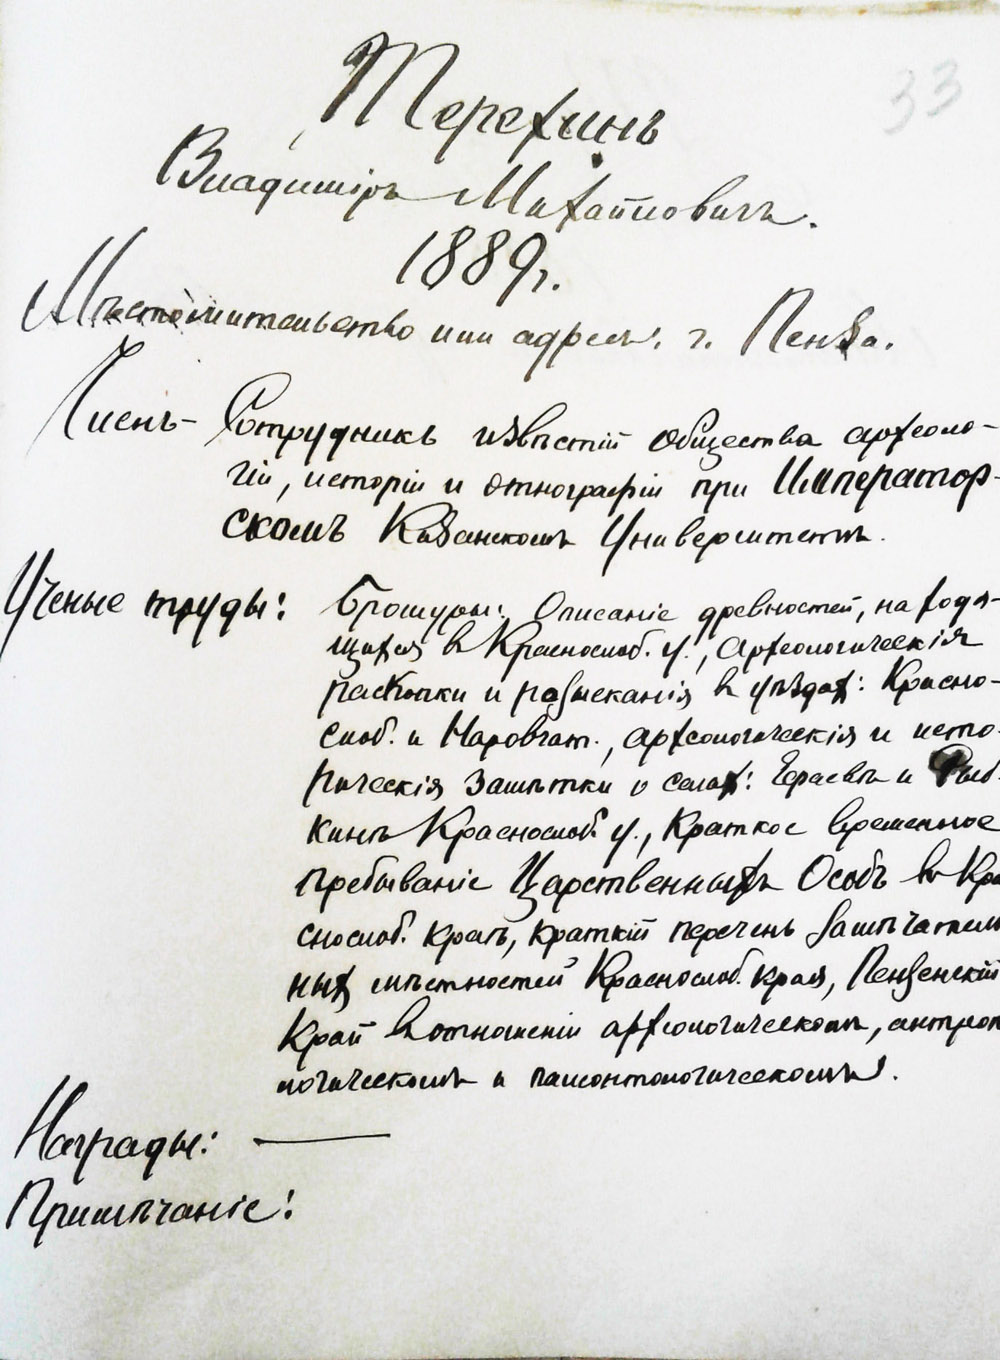 33
Терехинъ
Владиміръ Михайловичъ.
1889г.
Мѣстожительство или адресъ. г. Пенза.
Членъ- Сотрудникъ извѣстій Общества археоло-
гіи, исторіи и этнографіи при Император-
скомъ Казанскомъ Университетѣ.
Ученые труды: Брошуры: Описаніе древностей, находя-
щихся в Краснослоб. у., Археологическія
раскопки и розысканія въ уѣздах: Красно-
слоб. и Наровчат., археологическія и исто-
рическія замѣтки о селах: Ефаевѣ и Рыб-
кинѣ Краснослоб. у., Краткое временное
пребываніе Царственныхъ Особъ въ Кра
снослоб. краѣ, краткій перечень замѣчатель
ных мѣстностей Краснослоб. края, Пензенскій
Край въ отношеніи археологическомъ, антроп
логическомъ и палеонтологическомъ.
Награды: —
Примѣчаніе: